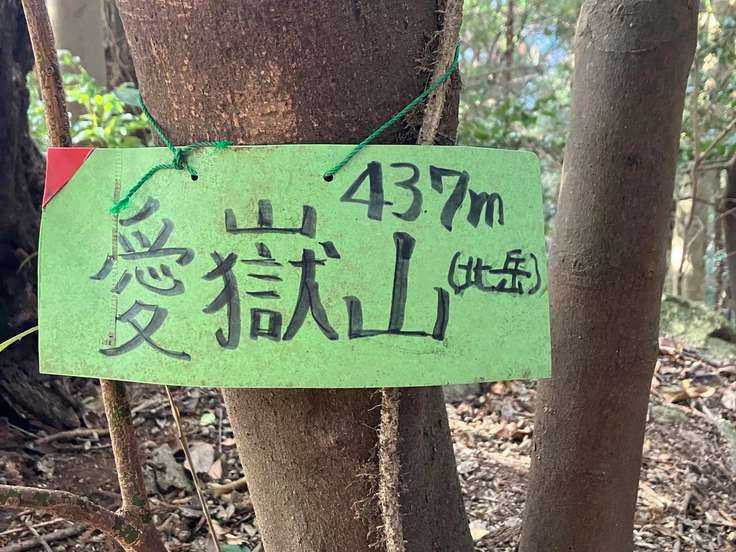 437m
愛嶽山(北岳)